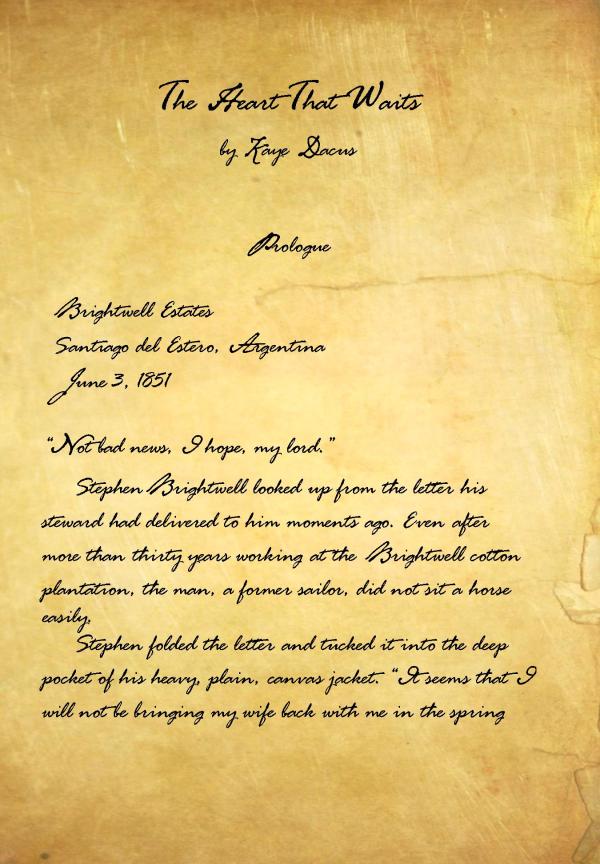 The Heart That Waits
by Kaye Dacus
Prologue
Brightwell Estates
Santiago del Estero, Argentina
June 3, 1851
“Not bad news, I hope, my lord.”
Stephen Brightwell looked up from the letter his
steward had delivered to him moments ago. Even after
more than thirty years working at the Brightwell cotton
plantation, the man, a former sailor, did not sit a horse
easily.
Stephen folded the letter and tucked it into the deep
pocket of his heavy, plain, canvas jacket. “It seems that I
will not be bringing my wife back with me in the spring